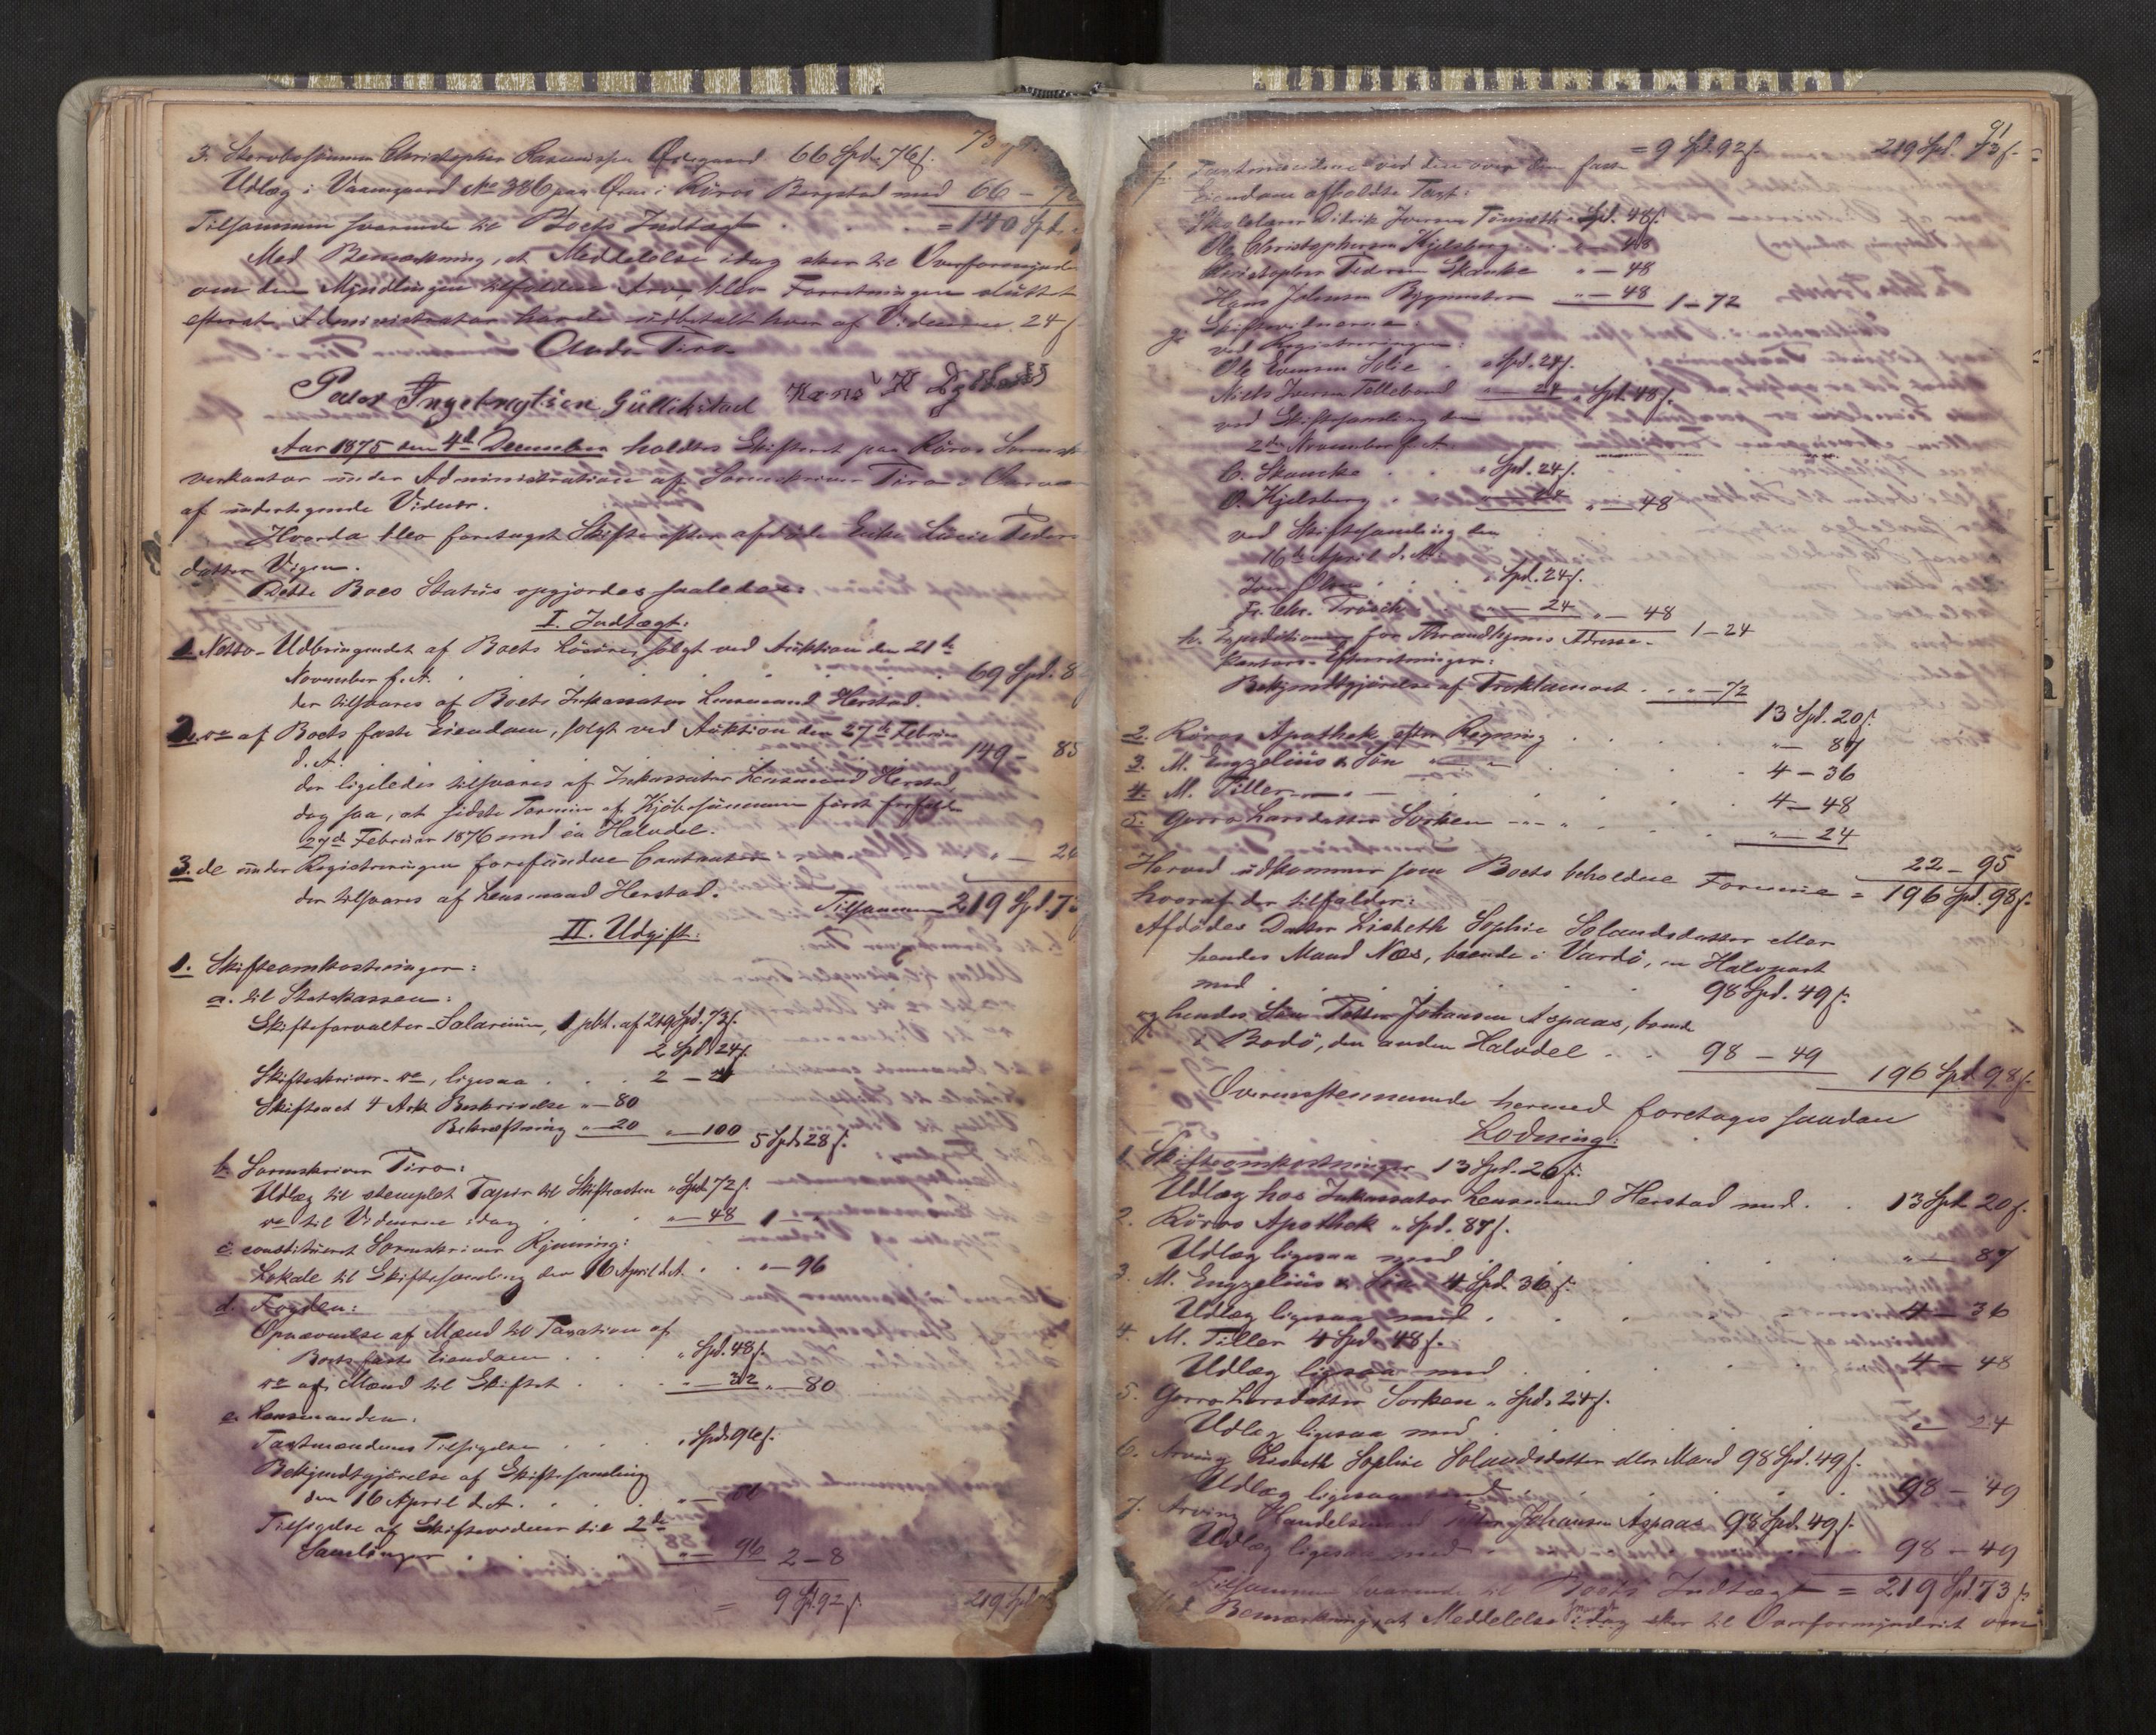 3. Stervbosummen Christopher Rasmussen Ødegaard 66 Spd. 76 f. 73
Udlæg i Vaaningaard No 386 paa Øren i Röros Bergstad med 66 — 7
Tilsammen svarende til Boets Indtægt = 140 Spd.
Med Bemærkning, at Meddelelse idag sker til Overformynde
om den Myndlingen tilfaldne Arv, blev Forretningen sluttet
efterat Administrator havde udbetalt hver af Vidnerne 24 f
Peder Ingebrigtsen Gullikstad Hans H
Aar 1875 den 4de December holdtes Skifteret paa Röros Sorensk
verkontor under Administration af Sorenskriver
af undertegnede Vidner.
Hvorda blev foretaget Skifte efter afdöde Enke Lucie Peders
datter Vigen.
Dette Boes Status opgjordes saaledes:
I. Indtægt:
1. Netto-Udbringendet af Boets Lösöre, solgt ved Auktion den 21de
November f. A. 69 Spd. 8
der tilsvares af Boets Inkassator Lensmand Herstad.
2. do af Boets faste Eiendom, solgt ved Auktion den 27de Febru
d. A. 149 — 85
der ligeledes tilsvares af Inkassator Lensmand Herstad,
dog saa, at sidste Termin af Kjöbesummen först forfalder
27de Februar 1876 med en Halvdel.
3. de under Registreringen forefundne Contanter " — 2
der tilsvares af Lensmand Herstad.
Tilsammen 219 Spd. 73
II. Udgift:
1. Skifteomkostninger:
a. til Statskassen:
Skifteforvalter-Salarium, 1 pCt. af 219 Spd. 73 f.
2 Spd. 24 f.
Skifteskriver-do, ligesaa 2 — 24
Skifteact 4 Ark Beskrivelse " — 80
Bekræftning " — 20 " — 100 5 Spd. 28 f.
b. Sorenskriver
Udlæg til stemplet Papir til Skifteacten " Spd. 72 f.
do til Vidnerne idag " — 48 1 —
c. constitueret Sorenskriver
Lokale til Skiftesamling den 16 April d. A. " — 96
d. Fogden:
Opnævnelse af Mænd til Taxation af
Boets faste Eiendom " Spd. 48 f.
do af Mænd til Skiftet " — 32 " — 80
e. Lensmanden:
Taxtmændenes Tilsigelse " Spd. 96 f.
Bekjendtgjörelse af Skiftesamling
den 16 April d. A.
Tilsigelse af Skiftevidner til 2de
Samlinger " — 96 2 — 8
= 9 Spd. 92 f. 219 Spd.
91
= 9 Spd. 92 f. 219 Spd. 73 f.
f. Taxtmændene ved den over den faste
Eiendom afholdte Taxt:
Skolelærer Didrik Iversen " Spd. 48 f.
Ole Christophersen Kjelsberg " — 48
Christopher Pedersen Skancke " — 48
Hans Johnsen Bygmester " — 48 1 — 72
g. Skiftevidnerne:
ved Registreringen:
Ole Evensen Holie " Spd. 24 f.
Niels Iversen " — 24 " Spd. 48 f.
ved Skiftesamling den
2den November f. A.
C. Skancke " Spd. 24 f.
O. Kjelsberg " — 24 " — 48
ved Skiftesamling den
16de April d. A.
Iver Olsen " Spd. 24 f.
Fr. Chr. " — 24 " — 48 1 — 24
h. Expeditionen for Throndhjems Adresse-
kontors-Efterretninger:
Bekjendtgjörelse af Proklamaet " — 72
13 Spd. 20 f.
2. Röros Apothek efter Regning " — 87
3. M. Engzelius & Sön " — " — 4 — 36
4. M. Tiller — " — 4 — 48
5. Gurro Larsdatter Sorken — " — " — 24
22 — 95
Herved udkommer som Boets beholdne Formue = 196 Spd. 98 f.
hvoraf der tilfalder:
Afdödes Datter Lisbeth Sophie Solandsdatter eller
hendes Mand Næs, boende i Vardö, en Halvpart
med 98 Spd. 49 f.
og hendes Sön Peder Johansen Aspaas, boende
i Bodö, den anden Halvdel 98 — 49
196 Spd. 98 f.
Overensstemmende hermed foretages saadan
Lodning:
1. Skifteomkostninger 13 Spd. 20 f.
Udlæg hos Inkassator Lensmand Herstad med 13 Spd. 20 f.
2. Röros Apothek " Spd. 87 f.
Udlæg ligesaa med " — 87
3. M. Engzelius & Sön 4 Spd. 36 f.
Udlæg ligesaa med 4 — 36
4. M. Tiller 4 Spd. 48 f.
Udlæg ligesaa med 4 — 48
5. Gurro Larsdatter Sorken " Spd. 24 f.
Udlæg ligesaa med " — 24
6. Arving Lisbeth Sophie Solandsdatter eller Mand 98 Spd. 49 f.
Udlæg ligesaa med 98 — 49
7. Arving Handelsmand Peder Johansen Aspaas 98 Spd. 49 f.
Udlæg ligesaa med 98 — 49
Tilsammen svarende til Boets Indtægt = 219 Spd. 73 f.
Med Bemærkning, at Meddelelse idag sker til Overformynderiet om